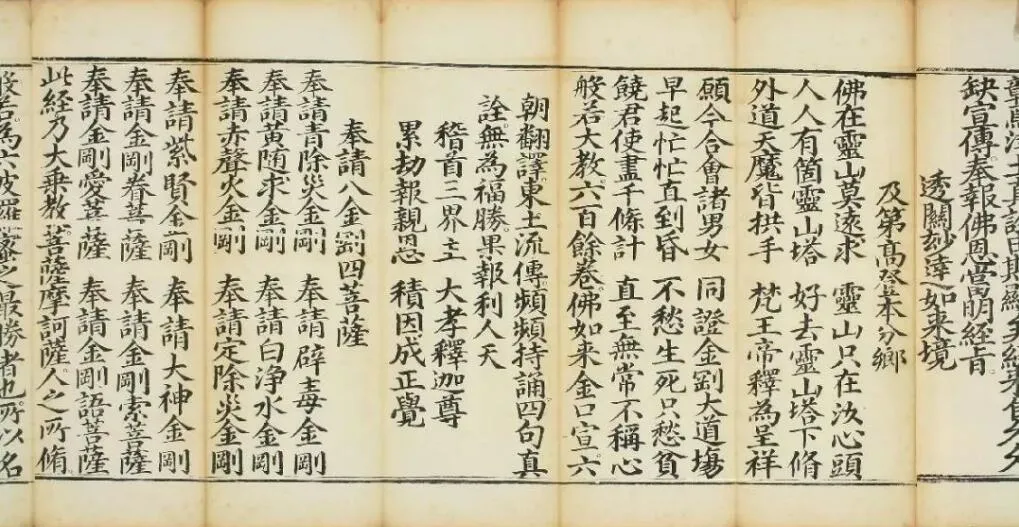 缺宣傳奉報佛恩當明經旨
透關玅達如來境
及第高登本分鄉
佛在靈山莫遠求 靈山只在汝心頭
人人有箇靈山塔 好去靈山塔下脩
外道天魔皆拱手 梵王帝釋為呈祥
願今合會諸男女 同證金剛大道場
早起忙忙直到昏 不愁生死只愁貧
饒君使盡千條計 直至無常不稱心
般若大教六百餘卷佛如來金口宣六
朝翻譯東土流傳頻頻持誦四句真
詮無為福勝果報利人天
稽首三界主 大孝釋迦尊
累劫報親恩 積因成正覺
奉請八金剛四菩薩
奉請青除災金剛 奉請辟毒金剛
奉請黃隨求金剛 奉請白淨水金剛
奉請赤聲火金剛 奉請定除災金剛
奉請紫賢金剛 奉請大神金剛
奉請金剛眷菩薩 奉請金剛索菩薩
奉請金剛愛菩薩 奉請金剛語菩薩
此經乃大乘教菩薩摩訶薩人之所脩
般若為六波羅蜜之最勝者也所以名